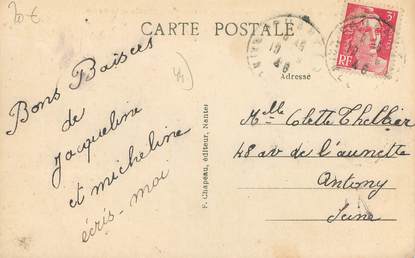 20 €
CARTE POSTALE
Adresse
Bons Baisers
de
Jacqueline
et micheline
écris-moi
F. Chapeau, éditeur, Nantes
Melle Colette Thellier
48 av de l'aunette
Antony
Seine
RF
46